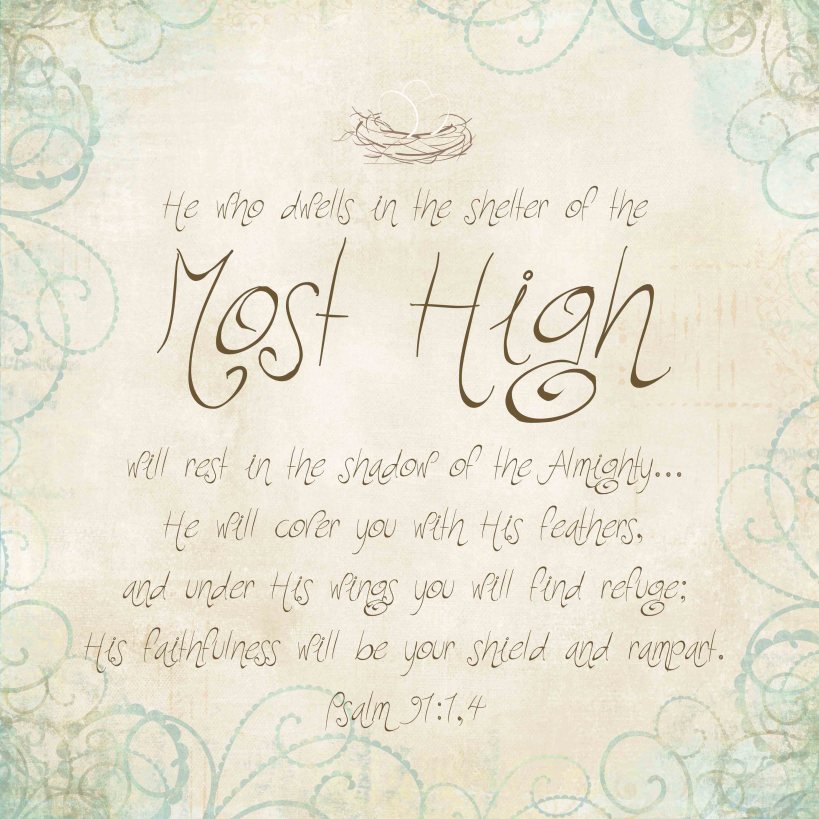 He who dwells in the shelter of the
Most High
will rest in the shadow of the Almighty...
He will cover you with His feathers,
and under His wings you will find refuge;
His faithfulness will be your shield and rampart.
Psalm 91:1,4